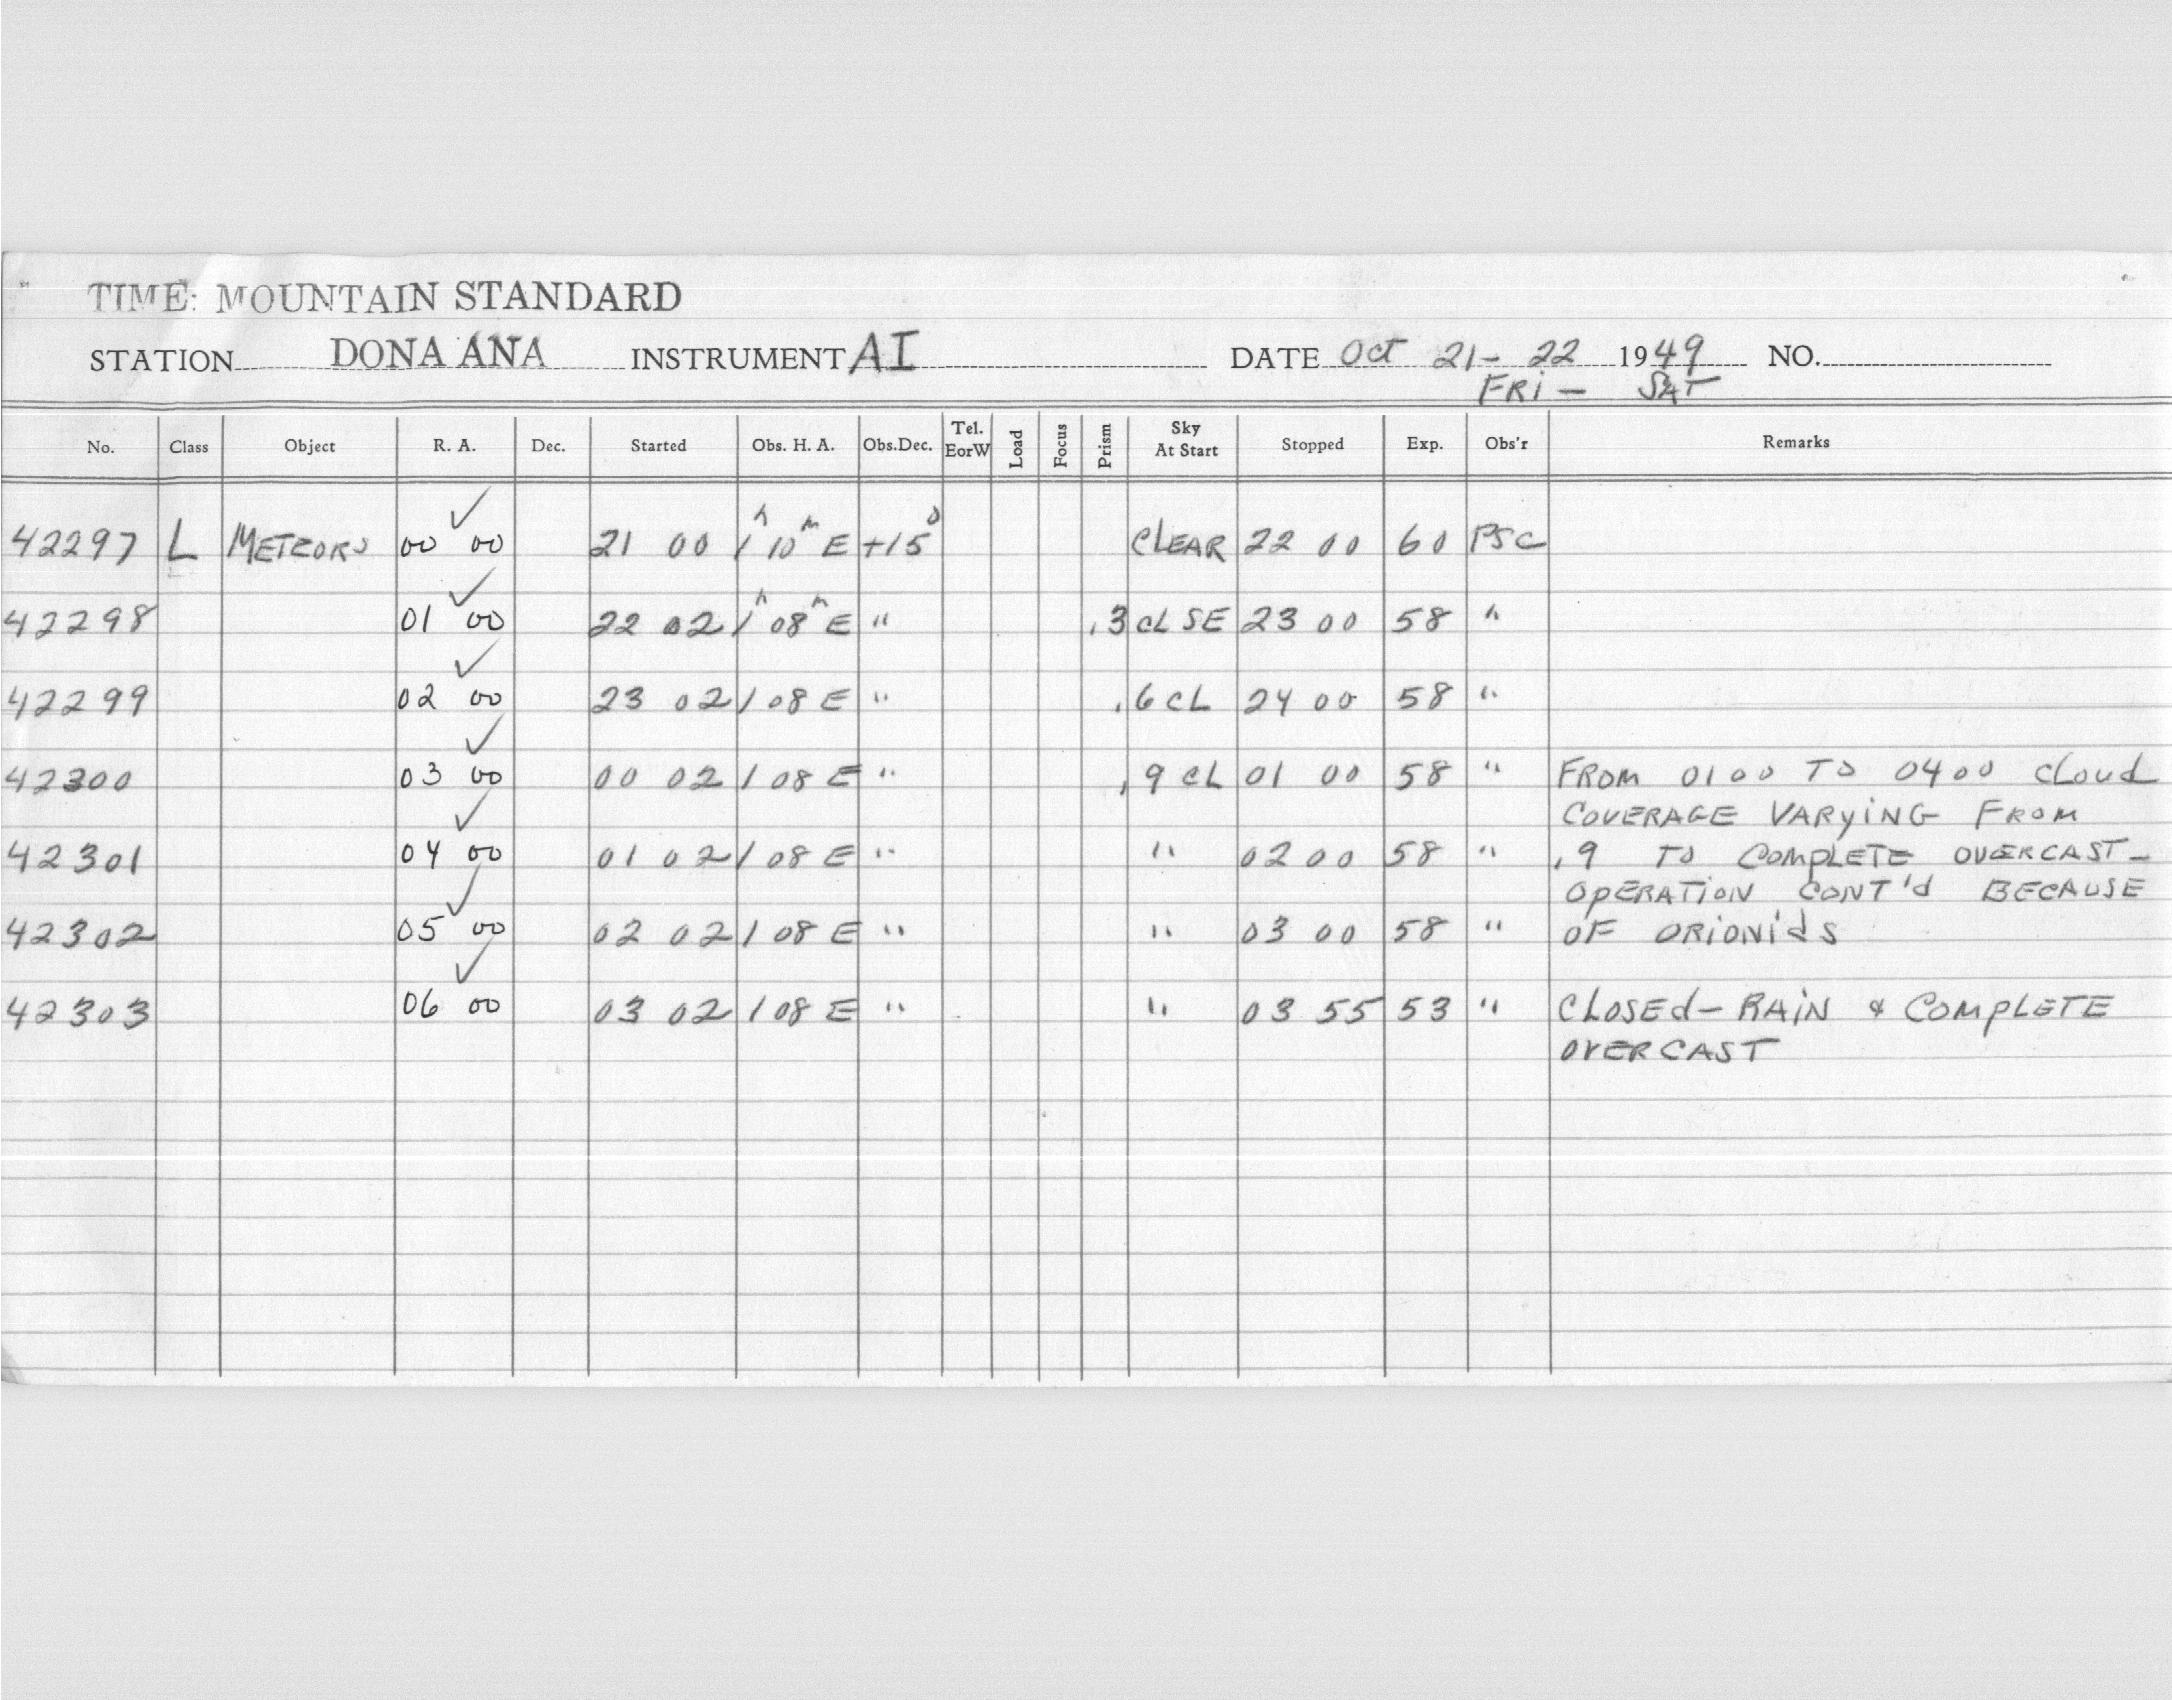 TIME: MOUNTAIN STANDARD
STATION DONA ANA INSTRUMENT AI DATE Oct 21-22 1949 NO.
FRI - SAT
No. Class Object R. A. Dec. Started Obs. H. A. Obs.Dec. Tel. EorW Load Focus Prism Sky At Start Stopped Exp. Obs'r Remarks
42297 L METEORS 00 00 ✓ 21 00 1h 10m E +15° CLEAR 22 00 60 PSC
42298 01 00 ✓ 22 02 1h 08m E " .3 CL SE 23 00 58 "
42299 02 00 ✓ 23 02 1 08 E " .6 CL 24 00 58 "
42300 03 00 ✓ 00 02 1 08 E " .9 CL 01 00 58 " FROM 0100 TO 0400 CLOUD
COVERAGE VARYING FROM
42301 04 00 ✓ 01 02 1 08 E " " 02 00 58 " .9 TO COMPLETE OVERCAST -
OPERATION CONT'd BECAUSE
42302 05 00 ✓ 02 02 1 08 E " " 03 00 58 " OF ORIONIdS
42303 06 00 ✓ 03 02 1 08 E " " 03 55 53 " CLOSEd - RAIN & COMPLETE
OVERCAST